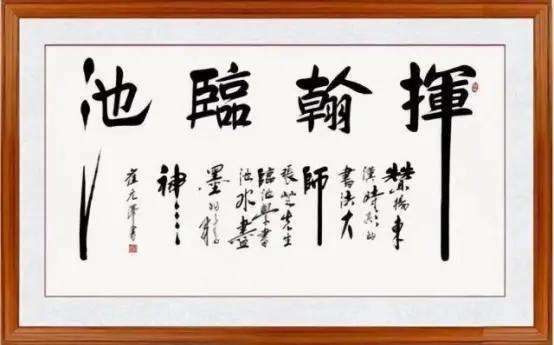 揮翰臨池
贊揚東
漢時期的
書法大
師
張芝先生
臨池學書
池水盡
墨的精
神……
崔元書